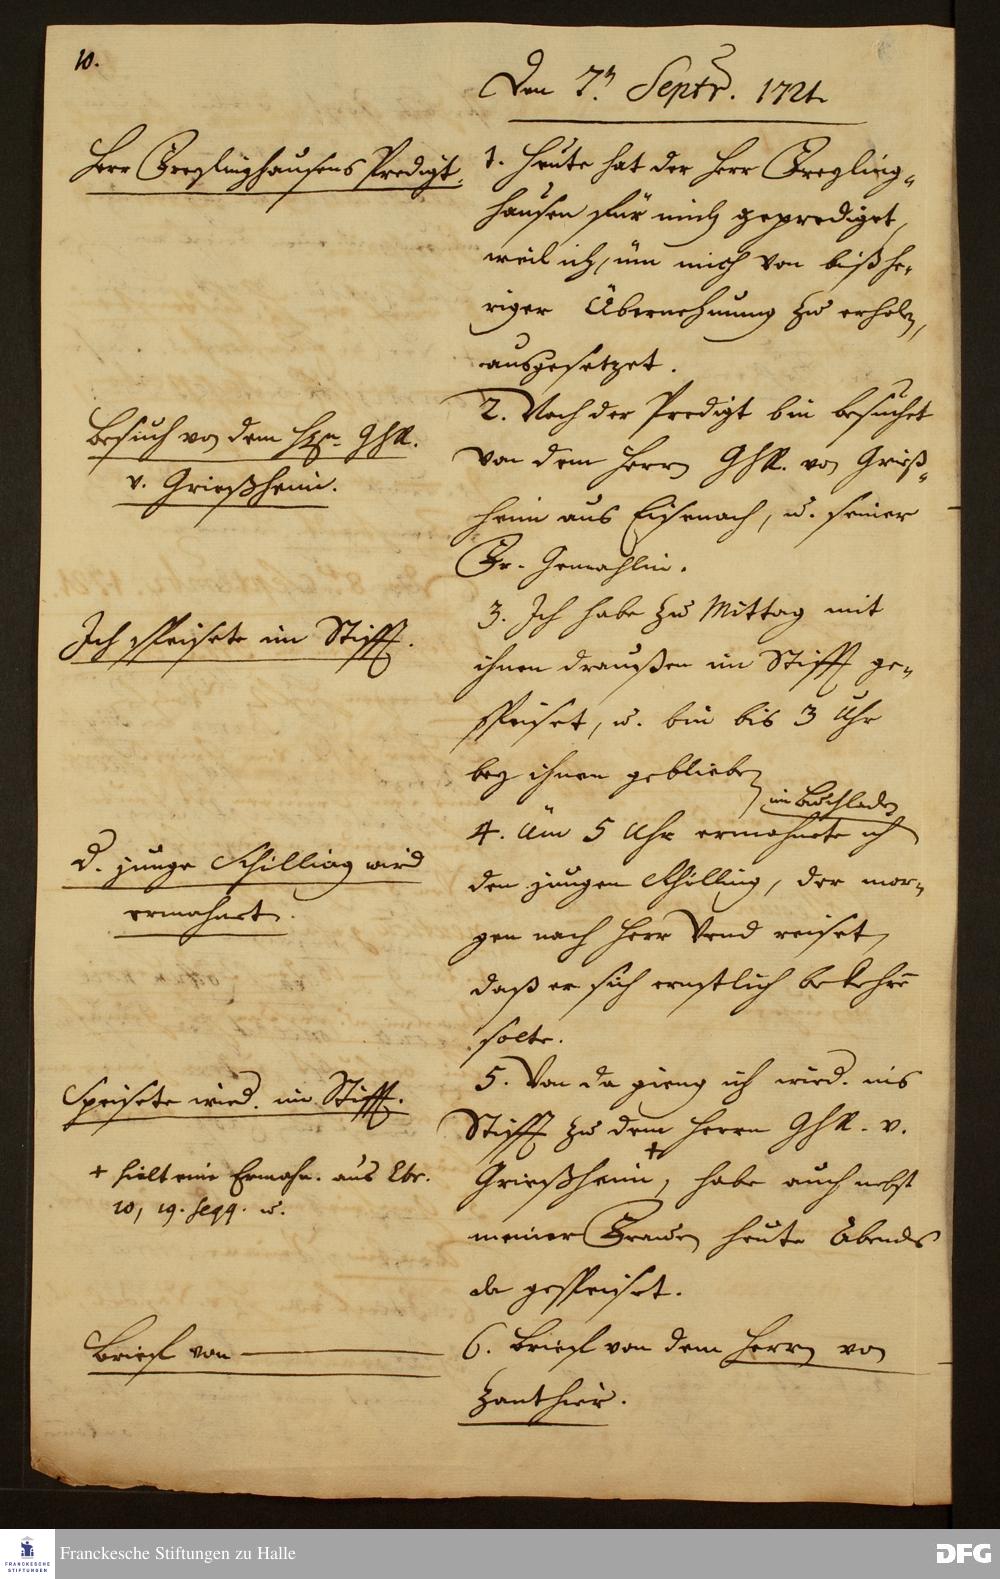 10.
Den 7.n Septr. 1721.
Herr Freylinghausens Predigt.
1. Heute hat der Herr Freyling-
hausen für mich geprediget,
weil ich, üm mich von bißhe-
riger Übernehmung zu erholen,
ausgesetzet.
Besuch von dem Hrn. GhR.
v. Grießheim.
2. Nach der Predigt bin besuchet
von dem Herrn GhR. von Grieß-
heim aus Eisenach, u. seiner
Fr. Gemahlin.
Ich speisete im Stifft.
3. Ich habe zu Mittag mit
ihnen draußen im Stifft ge-
speiset, u. bin bis 3 Uhr
bey ihnen geblieben
D. junge Schilling wird
ermahnet.
im Buchladen
4. Üm 5 Uhr ermahnete ich
den jungen Schilling, der mor-
gen nach Herr Vend reiset,
daß er sich ernstlich bekehren
solte.
Speisete wied. im Stifft.
+ hielt eine Ermahn. aus Ebr.
10, 19. seqq. u.
5. Von da gieng ich wied. ins
Stifft zu dem Herrn GhR. v.
Grießheim +, habe auch nebst
meiner Frauen heute Abends
da gespeiset.
Brief von
6. Brief von dem Herrn von
Zanthier.
Franckesche Stiftungen zu Halle
FRANCKESCHE
STIFTUNGEN
DFG